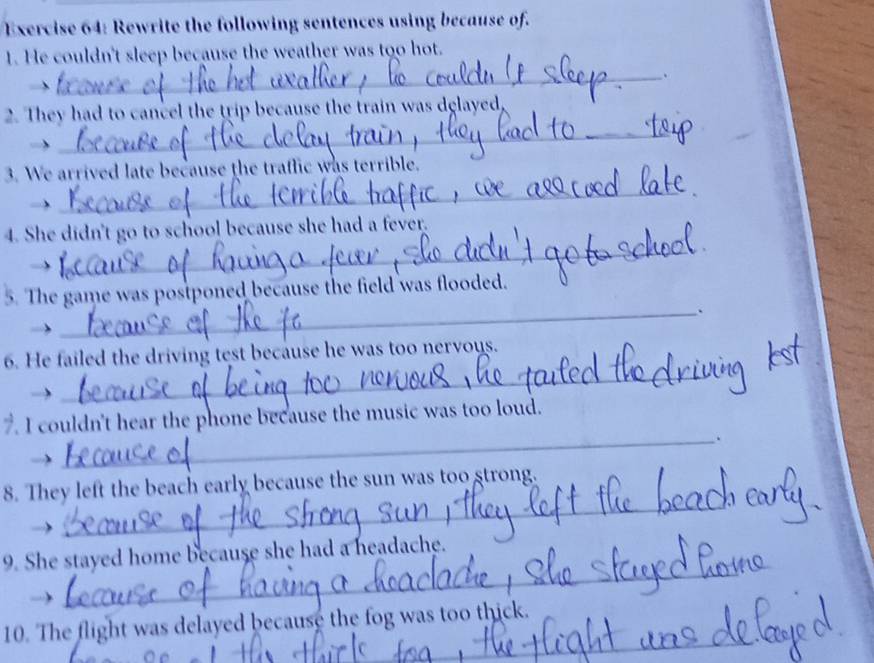 Exercise 64: Rewrite the following sentences using because of.
1. He couldn't sleep because the weather was too hot.
→ because of the hot weather, he couldn't sleep.
2. They had to cancel the trip because the train was delayed.
→ because of the delay train, they had to __ trip
3. We arrived late because the traffic was terrible.
→ Because of the terrible traffic, we arrived late.
4. She didn't go to school because she had a fever.
→ because of having a fever, she didn't go to school.
5. The game was postponed because the field was flooded.
→ because of the fo
6. He failed the driving test because he was too nervous.
→ because of being too nervous, he failed the driving test
7. I couldn't hear the phone because the music was too loud.
→ because of
8. They left the beach early because the sun was too strong.
→ because of the strong sun, they left the beach early.
9. She stayed home because she had a headache.
→ because of having a headache, she stayed home
10. The flight was delayed because the fog was too thick.
the thick fog, the flight was delayed.